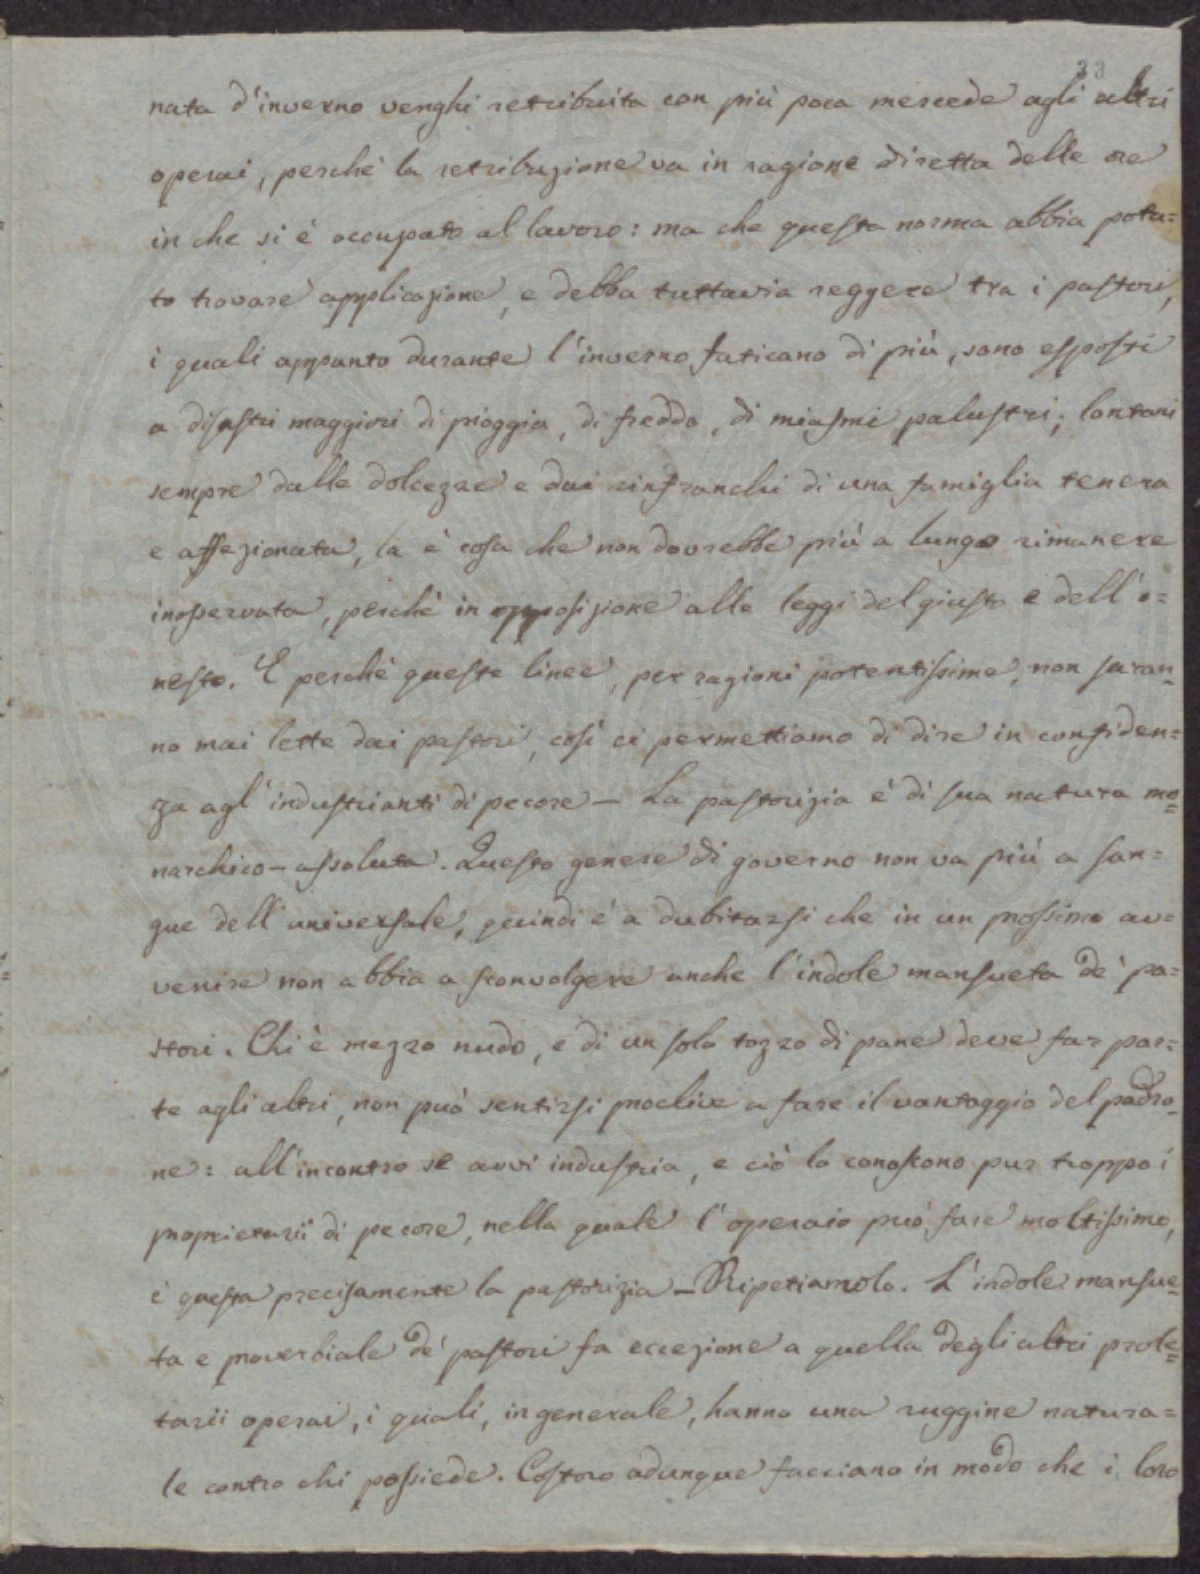 33
nata d'inverno venghi retribuita con più poca mercede agli altri
operai, perchè la retribuzione va in ragione diretta delle ore
in che si è occupato al lavoro: ma che questa norma abbia potu=
to trovare applicazione, e debba tuttavia reggere tra i pastori,
i quali appunto durante l'inverno faticano di più, sono esposti
a disastri maggiori di pioggia, di freddo, di miasmi palustri; lontani
sempre dalle dolcezze e dai rinfranchi di una famiglia tenera
e affezionata, la è cosa che non dovrebbe più a lungo rimanere
inosservata, perchè in opposizione alle leggi del giusto e dell'o=
nesto. E perchè queste linee, per ragioni potentissime, non saran=
no mai lette dai pastori, così ci permettiamo di dire in confiden=
za agl'industrianti di pecore — La pastorizia è di sua natura mo=
narchico-assoluta. Questo genere di governo non va più a san=
gue dell'universale, quindi è a dubitarsi che in un prossimo av=
venire non abbia a sconvolgere anche l'indole mansueta de' pa=
stori. Chi è mezzo nudo, e di un solo tozzo di pane deve far par=
te agli altri, non può sentirsi proclive a fare il vantaggio del padro=
ne: all'incontro se avvi industria, e ciò lo conoscono pur troppo i
proprietarii di pecore, nella quale l'operaio può fare moltissimo,
è questa precisamente la pastorizia — Ripetiamolo. L'indole mansue=
ta e proverbiale de' pastori fa eccezione a quella degli altri prole=
tarii operai, i quali, in generale, hanno una ruggine natura=
le contro chi possiede. Costoro adunque facciano in modo che i loro